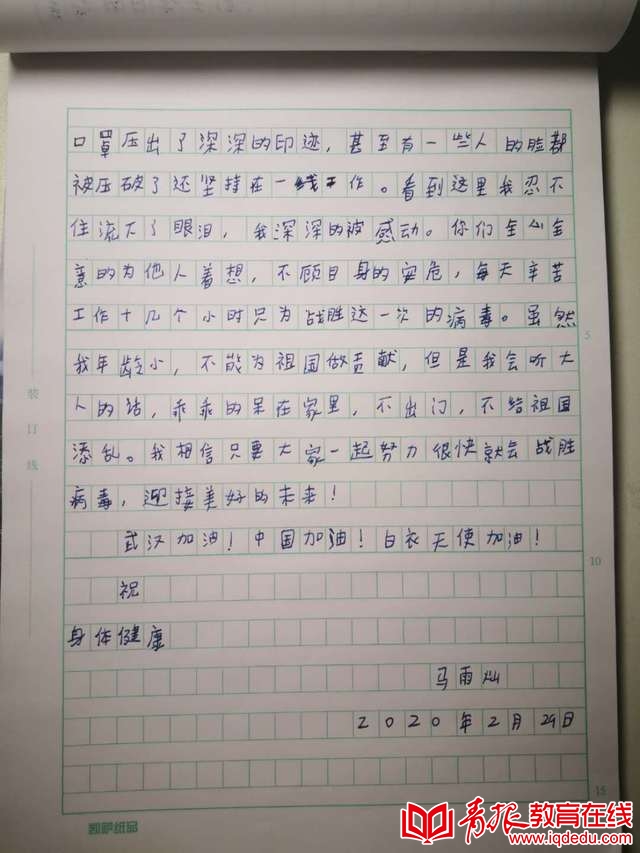 口罩压出了深深的印迹，甚至有一些人的脸都
被压破了还坚持在一线工作。看到这里我忍不
住流下了眼泪，我深深的被感动。你们全心全
意的为他人着想，不顾自身的安危，每天辛苦
工作十几个小时只为战胜这一次的病毒。虽然
我年龄小，不能为祖国做贡献，但是我会听大
人的话，乖乖的呆在家里，不出门，不给祖国
添乱。我相信只要大家一起努力很快就会战胜
病毒，迎接美好的未来！
武汉加油！中国加油！白衣天使加油！
祝
身体健康
马雨灿
2020年2月29日
5
10
15
装订线
凯萨纸品
青报教育在线
www.iqdedu.com